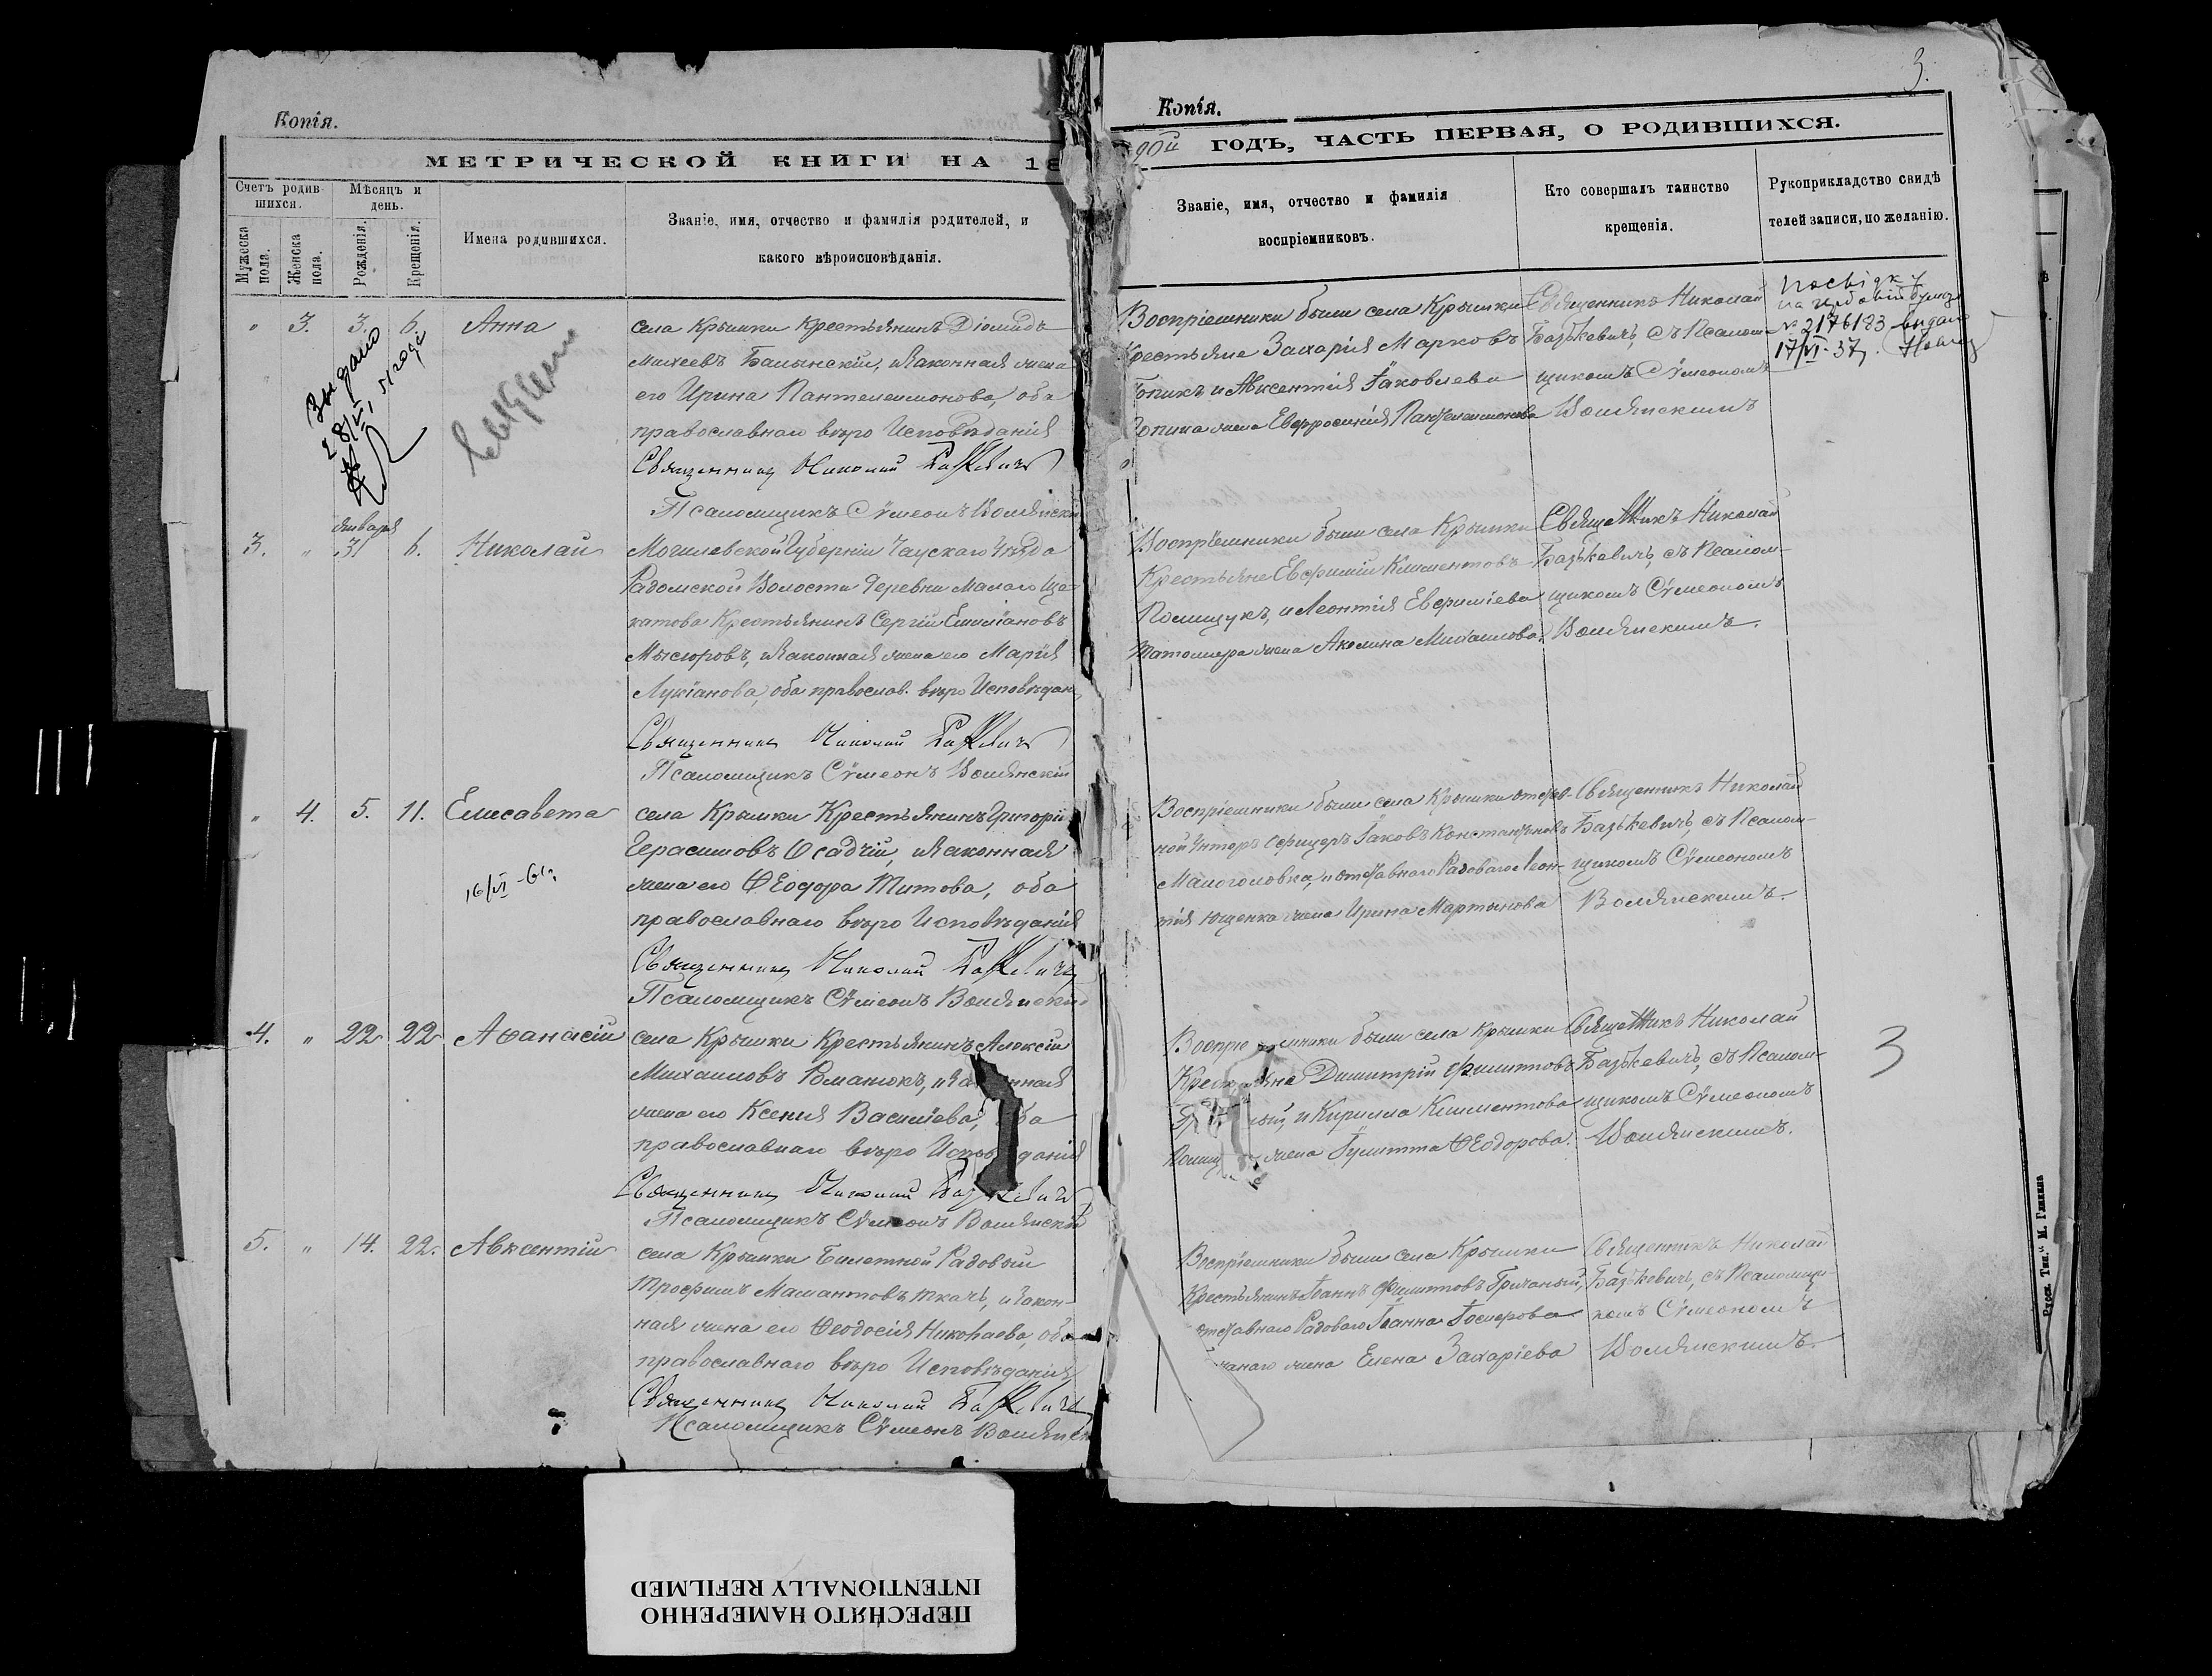 Копія.
МЕТРИЧЕСКОЙ КНИГИ НА 18
Счетъ родив
шихся.
Мѣсяцъ и
день.
Мужеска
пола.
Женска
пола.
Рожденія.
Крещенія.
Имена родившихся.
Званіе, имя, отчество и фамилія родителей, и
какого вѣроисповѣданія.
" 3. 3. 6. Анна
села Крымки Крестьянинъ Діомидъ
его Ирина Пантелеимонова, оба
православнаго вѣро Исповѣданія
Священникъ Николай Базькевичъ
Псаломщикъ Сѵмеонъ
Выдано
28/V, 51 года
января
3. " 31 6. Николай
Могилевской Губерніи Чаускаго Уѣзда
Радомской Волости деревни Малаго Ща-
катова Крестьянинъ Сергій Емиліановъ
Мысюровъ, и законная жена его Марія
Лукіанова, оба православ. вѣро Исповѣдан
Священникъ Николай Базькевичъ
Псаломщикъ Сѵмеонъ Волянскій
" 4. 5. 11. Елисавета
села Крымки Крестьянинъ Григорій
Герасимовъ Осадчій, и законная
жена его Ѳеодора Титова, оба
православнаго вѣро Исповѣданія
Священникъ Николай Базькевичъ
Псаломщикъ Сѵмеонъ Волянскій
16/VI-61г.
4. " 22 22 Аѳанасій
села Крымки Крестьянинъ Алексій
Михаиловъ Романюкъ, и законная
жена его Ксенія Василіева, оба
православнаго вѣро Исповѣданія
Священникъ Николай Базькевичъ
Псаломщикъ Сѵмеонъ Волянскій
5. " 14. 22. Авксентій
села Крымки Билетной Рядовый
Трофимъ Мамантовъ Ткачъ, и закон-
ная жена его Ѳеодосія Николаева, оба
православнаго вѣро Исповѣданія
Священникъ Николай Базькевичъ
Псаломщикъ Сѵмеонъ
3.
Копія.
90й ГОДЪ, ЧАСТЬ ПЕРВАЯ, О РОДИВШИХСЯ.
Званіе, имя, отчество и фамилія
воспріемниковъ.
Кто совершалъ таинство
крещенія.
Рукоприкладство свидѣ
телей записи, по желанію.
Воспріемники были села Крымки
Крестьяне Захарія Марковъ
и Авксентія Іаковлева
жена Евфросинія Пантелеимонова
Священникъ Николай
Базькевичъ, съ Псалом-
щикомъ Сѵмеономъ
Волянскимъ
№ 2176183 видано
17/VI-37
Воспріемники были села Крымки
Крестьяне Евфимій Климентовъ
Полищукъ, и Леонтія Евфиміева
жена Акилина Михаилова.
Священникъ Николай
Базькевичъ, съ Псалом-
щикомъ Сѵмеономъ
Волянскимъ.
Воспріемники были села Крымки отстав-
ной Унтеръ Офицеръ Іаковъ Константиновъ
Малоголовка, и отставнаго Рядоваго Леон-
тія Ющенка жена Ирина Мартынова
Священникъ Николай
Базькевичъ, съ Псалом-
щикомъ Сѵмеономъ
Волянскимъ.
были села Крымки
Димитрій Филипповъ
и Кирилла Климентова
жена Іулитта Ѳеодорова.
Священникъ Николай
Базькевичъ, съ Псалом-
щикомъ Сѵмеономъ
Волянскимъ.
3
Воспріемники были села Крымки
Крестьянинъ Іоаннъ Филипповъ Гричаный,
отставнаго Рядоваго Іоанна
жена Елена Захаріева
Священникъ Николай
Базькевичъ, съ Псаломщи-
комъ Сѵмеономъ
Волянскимъ.
Русск. Тип." М. Гликина
ПЕРЕСНЯТО НАМЕРЕННО
INTENTIONALLY REFILMED